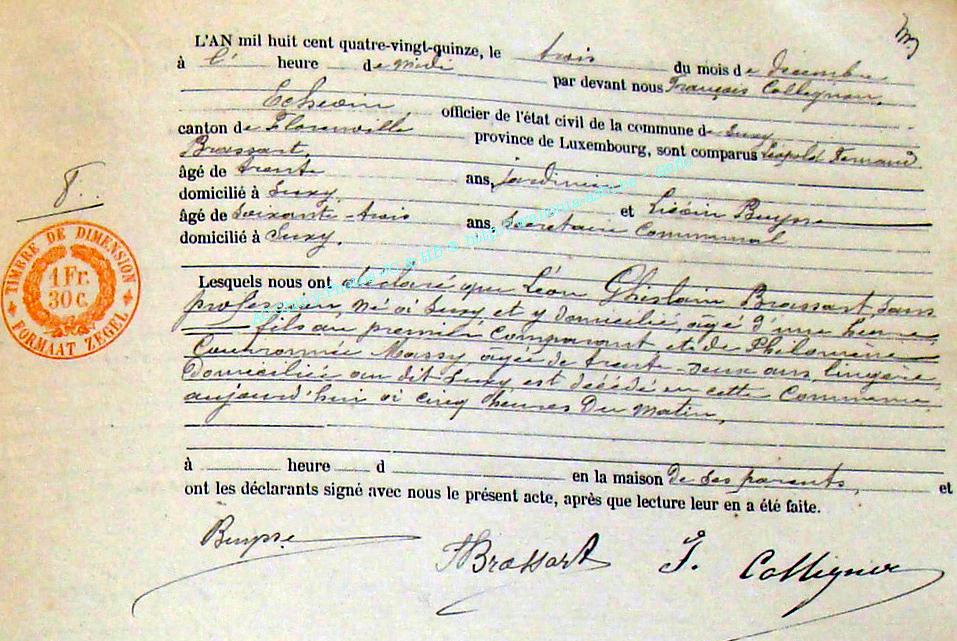 L'AN mil huit cent quatre-vingt-quinze, le trois du mois de décembre
à l' heure de midi par devant nous François Collignon,
Echevin officier de l'état civil de la commune de Suxy
canton de Florenville province de Luxembourg, sont comparus Léopold Fernand
Brossart,
âgé de trente ans, jardinier
domicilié à Suxy, et Buysse
âgé de Soixante-trois ans, Secrétaire Communal
domicilié à Suxy.
Lesquels nous ont déclaré que Léon Ghislain Brossart, sans
profession, né à Suxy et y domicilié, âgé d'une heure,
fils du premier comparant et de Philomène
Couronnée Massy âgée de trente-deux ans, lingère,
domiciliée au dit Suxy est décédé en cette Commune
aujourd'hui à cinq heures du matin,
à heure d en la maison de ses parents, et
ont les déclarants signé avec nous le présent acte, après que lecture leur en a été faite.
8.
TIMBRE DE DIMENSION
1 Fr.
30 C.
FORMAAT ZEGEL
Buysse Brossart F. Collignon